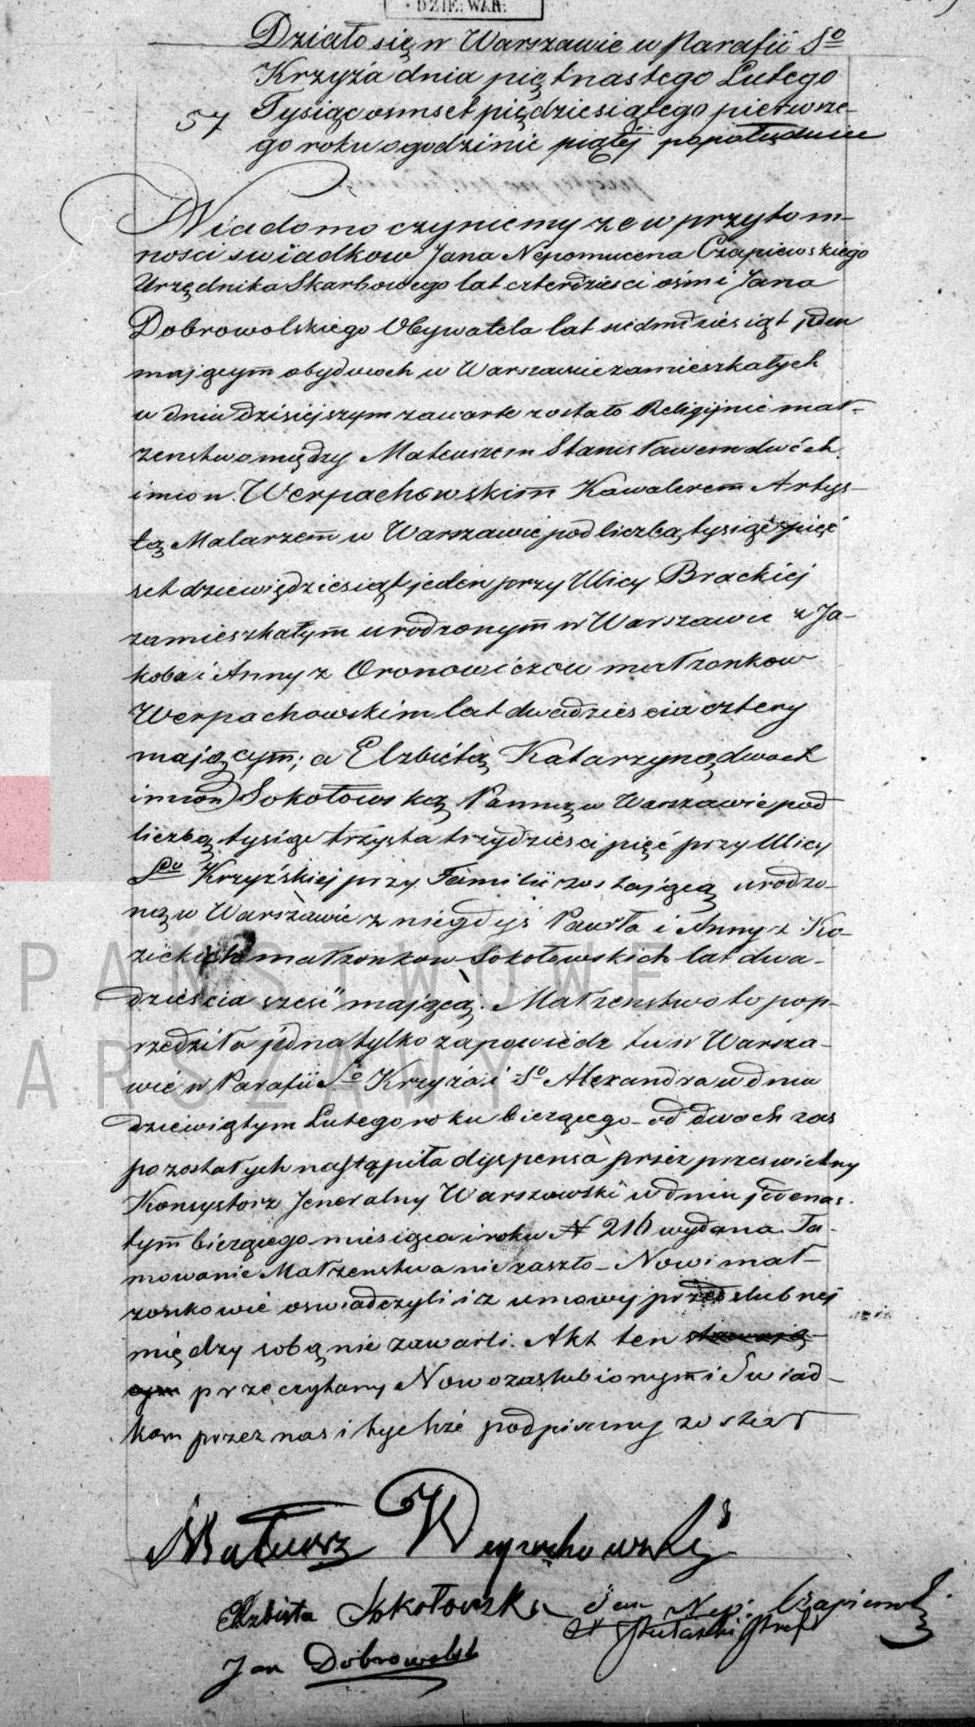 DZIE: WAR:
Działo się w Warszawie w Parafii Sº
Krzyża dnia piętnastego Lutego
57 Tysiąc ośmset pięćdziesiątego pierwsze-
go roku o godzinie piątéj popołudniu
Wiadomo czyniemy że w przytom-
ności świadków Jana Nepomucena Czapiewskiego
Urzędnika Skarbowego lat czterdzieści ośm i Jana
Dobrowolskiego Obywatela lat siedmdziesiąt jeden
mającym obydwóch w Warszawie zamieszkałych
w dniu dzisiejszym zawarte zostało Religijnie mał-
żeństwo między Mateuszem Stanisławem dwóch
imion Werpachowskim Kawalerem Artys-
tą Malarzem w Warszawie pod liczbą tysiąc pięć
set dziewięćdziesiąt jeden przy Ulicy Brackiej
zamieszkałym urodzonym w Warszawie z Ja-
koba i Anny z Oronowiczów małżonków
Werpachowskim lat dwadzieścia cztery
mającym; a Elżbietą Katarzyną dwóch
imion Sokołowską Panną w Warszawie pod
liczbą tysiąc trzysta trzydzieści pięć przy Ulicy
Sto Krzyżskiej przy Familii zostającą urodzo-
ną w Warszawie z niegdyś Pawła i Anny z Ko-
zickich małżonków Sokołowskich lat dwa-
dzieścia sześć mającą. Małżeństwo to pop-
rzedziła jedna tylko zapowiedź tu w Warsza-
wie w Parafii Sº Krzyża i Sº Alexandra w dniu
dziewiątym Lutego roku bieżącego - od dwóch zaś
pozostałych nastąpiła dyspensa przez prześwietny
Konsystorz Jeneralny Warszawski w dniu jedenas-
tym bieżącego miesiąca i roku N 216 wydana. Ta-
mowanie Małżeństwa nie zaszło - Nowi mał-
żonkowie oświadczyli iż umowy przedślubnej
między sobą nie zawarli. Akt ten stawają-
cym przeczytany Nowozaślubionym i Świad-
kom przez nas i tychże podpisany został
Mateusz Werpachowski
Elżbieta Sokołowska Jan Nep: Czapiewski
Jan Dobrowolski
PAŃSTWOWE
ARSZAWY